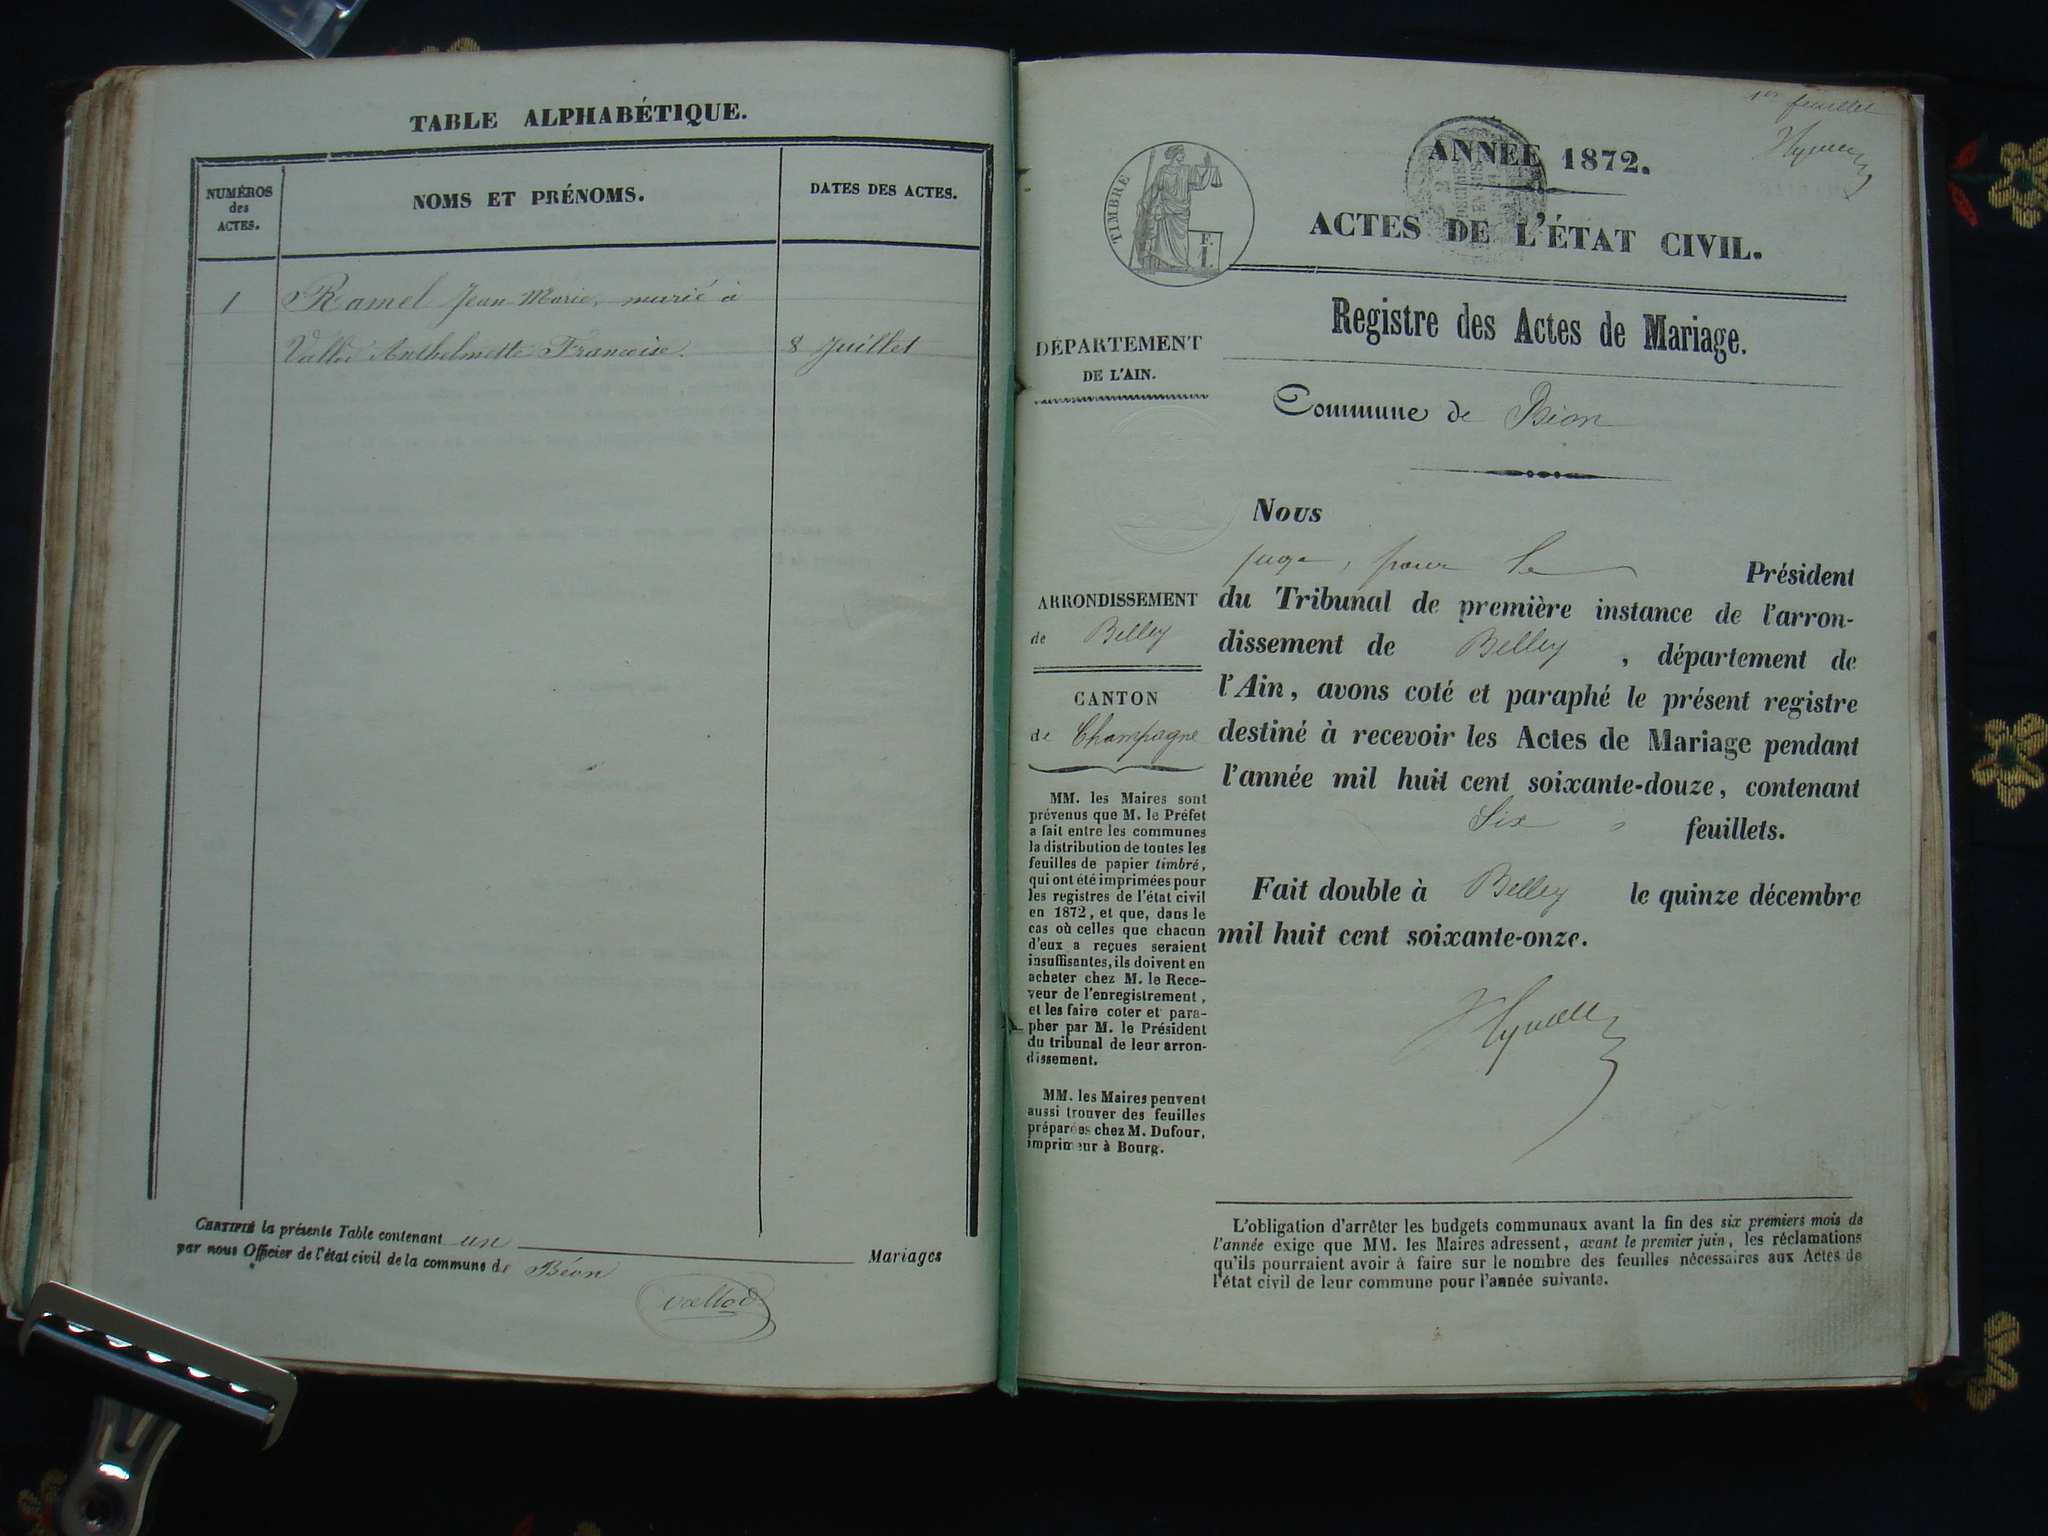 TABLE ALPHABÉTIQUE.
NUMÉROS
des
ACTES.
NOMS ET PRÉNOMS.
DATES DES ACTES.
1 Ramel Jean-Marie, marié à
Vallod Anthelmette Françoise. 8 Juillet
CERTIFIÉ la présente Table contenant un Mariages
par nous Officier de l'état civil de la commune de Béon
Vallod
1er feuillet
TIMBRE
F.
1.
ANNÉE 1872.
ACTES DE L'ÉTAT CIVIL.
Registre des Actes de Mariage.
DÉPARTEMENT
DE L'AIN.
Commune de Béon
Nous
juge, pour le Président
du Tribunal de première instance de l'arron-
dissement de Belley, département de
l'Ain, avons coté et paraphé le présent registre
destiné à recevoir les Actes de Mariage pendant
l'année mil huit cent soixante-douze, contenant
Six feuillets.
Fait double à Belley le quinze décembre
mil huit cent soixante-onze.
ARRONDISSEMENT
de Belley
CANTON
de Champagne
MM. les Maires sont
prévenus que M. le Préfet
a fait entre les communes
la distribution de toutes les
feuilles de papier timbré,
qui ont été imprimées pour
les registres de l'état civil
en 1872, et que, dans le
cas où celles que chacun
d'eux a reçues seraient
insuffisantes, ils doivent en
acheter chez M. le Rece-
veur de l'enregistrement,
et les faire coter et para-
pher par M. le Président
du tribunal de leur arron-
dissement.
MM. les Maires peuvent
aussi trouver des feuilles
préparées chez M. Dufour,
imprimeur à Bourg.
L'obligation d'arrêter les budgets communaux avant la fin des six premiers mois de
l'année exige que MM. les Maires adressent, avant le premier juin, les réclamations
qu'ils pourraient avoir à faire sur le nombre des feuilles nécessaires aux Actes de
l'état civil de leur commune pour l'année suivante.